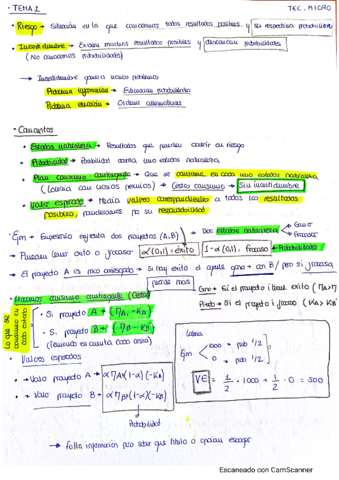 · TEMA 1 TEC. MICRO
· Riesgo → Situación en la que conocemos todos resultados posibles y su respectiva probabilidad
· Incertidumbre → Existen muchos resultados posibles y desconocemos probabilidades
(No conocemos probabilidades)
→ Incertidumbre genera varios problemas
Problema información → Estimación probabilidades
Problema elección → Ordenar alternativas
· Conceptos
· Estados naturaleza → Resultados que pueden ocurrir en riesgo
· Probabilidad → Posibilidad ocurra una estados naturaleza
· Plan consumo contingente → Que se consume en cada uno estados naturaleza
(Lotería con varios premios) → Cestas consumo → Sin incertidumbre
· Valor esperado → Media valores correspondientes a todos los resultados
posibles, ponderamos por su
· Ejm → Empresario ejecuta dos proyectos (A, B) → Dos estados naturaleza
→ Pueden tener éxito o fracaso α (0,1) = éxito 1-α (0,1), fracaso → Probabilidades
→ El proyecto A es más arriesgado → Si hay éxito el agente gana + con B / pero si fracasa
pierde más
Gano → Si el proyecto i tiene éxito
Pierdo → Si el proyecto i fracasa (KA > KB)
consumo contingente
Lo que se consume en cada estado
· Si proyecto A → (ΠA, -KA)
· Si proyecto B → (ΠB, -KB)
· Valores esperados
→ Valor proyecto A → αΠA+(1-α)(-KA)
→ Valor proyecto B = αΠB+(1-α)(-KB)
Probabilidad
Lotería
Ejm 1000 → prob 1/2
0 → prob 1/2
VE = 1/2 · 1000 + 1/2 · 0 = 500
→ Falta información para saber que título u opción escoger
Escaneado con CamScanner